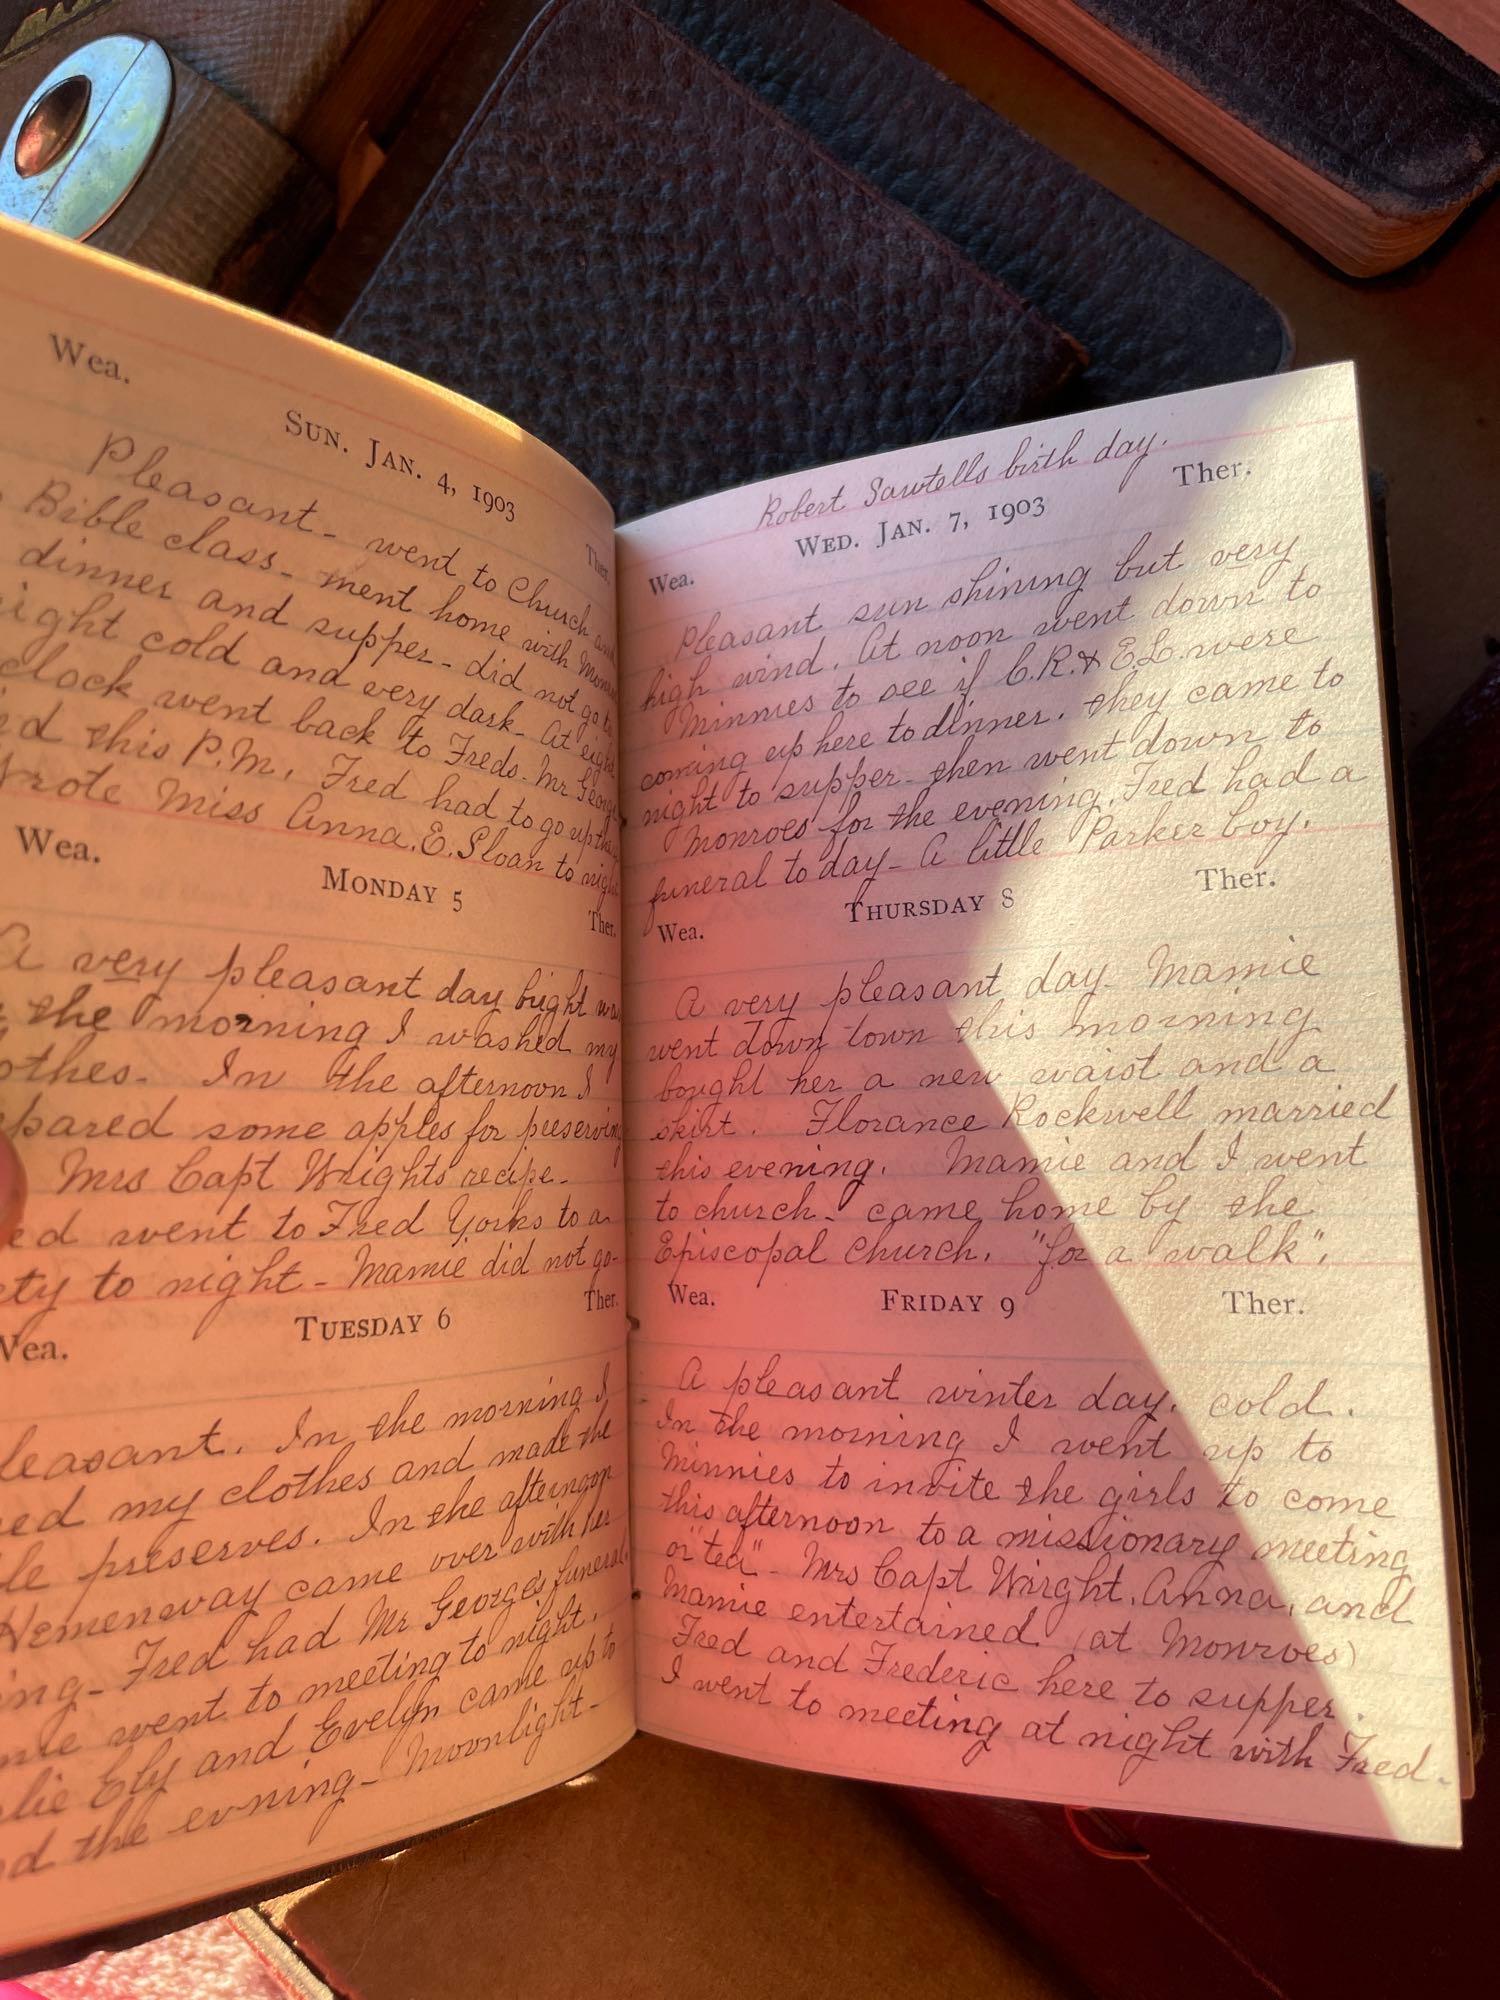 Wea.
SUN. JAN. 4, 1903
Ther.
Pleasant - went to Church and
Bible class - went home with Monroes
dinner and supper - did not go to
night cold and very dark - At eight
clock went back to Freds. Mr George
this P.M. Fred had to go up
Wrote Miss Anna. E. Sloan to night
Wea.
MONDAY 5
Ther.
A very pleasant day bright
the morning I washed my
clothes. In the afternoon I
pared some apples for preserving
Mrs Capt Wrights recipe -
went to Fred Yorks to a
to night - Mamie did not go -
Wea.
TUESDAY 6
Ther.
Pleasant. In the morning I
my clothes and made the
preserves. In the afternoon
Hemenway came over with her
Fred had Mr George's funeral.
went to meeting to night.
Ely and Evelyn came up to
the evning - Moonlight -
Robert Sawtells birth day.
WED. JAN. 7, 1903
Wea.
Ther.
Pleasant sun shining but very
high wind. At noon went down to
Minnies to see if C.R. & E.L. were
coming up here to dinner. they came to
night to supper - then went down to
Monroes for the evening. Fred had a
funeral to day - A little Parker boy.
Wea.
THURSDAY 8
Ther.
A very pleasant day - Mamie
went down town this morning
bought her a new waist and a
skirt. Florance Rockwell married
this evening. Mamie and I went
to church - came home by the
Episcopal church. "for a walk".
Wea.
FRIDAY 9
Ther.
A pleasant winter day. cold.
In the morning I went up to
Minnies to invite the girls to come
this afternoon to a missionary meeting
or "tea" - Mrs Capt Wright, Anna, and
Mamie entertained (at Monroes)
Fred and Frederic here to supper.
I went to meeting at night with Fred -